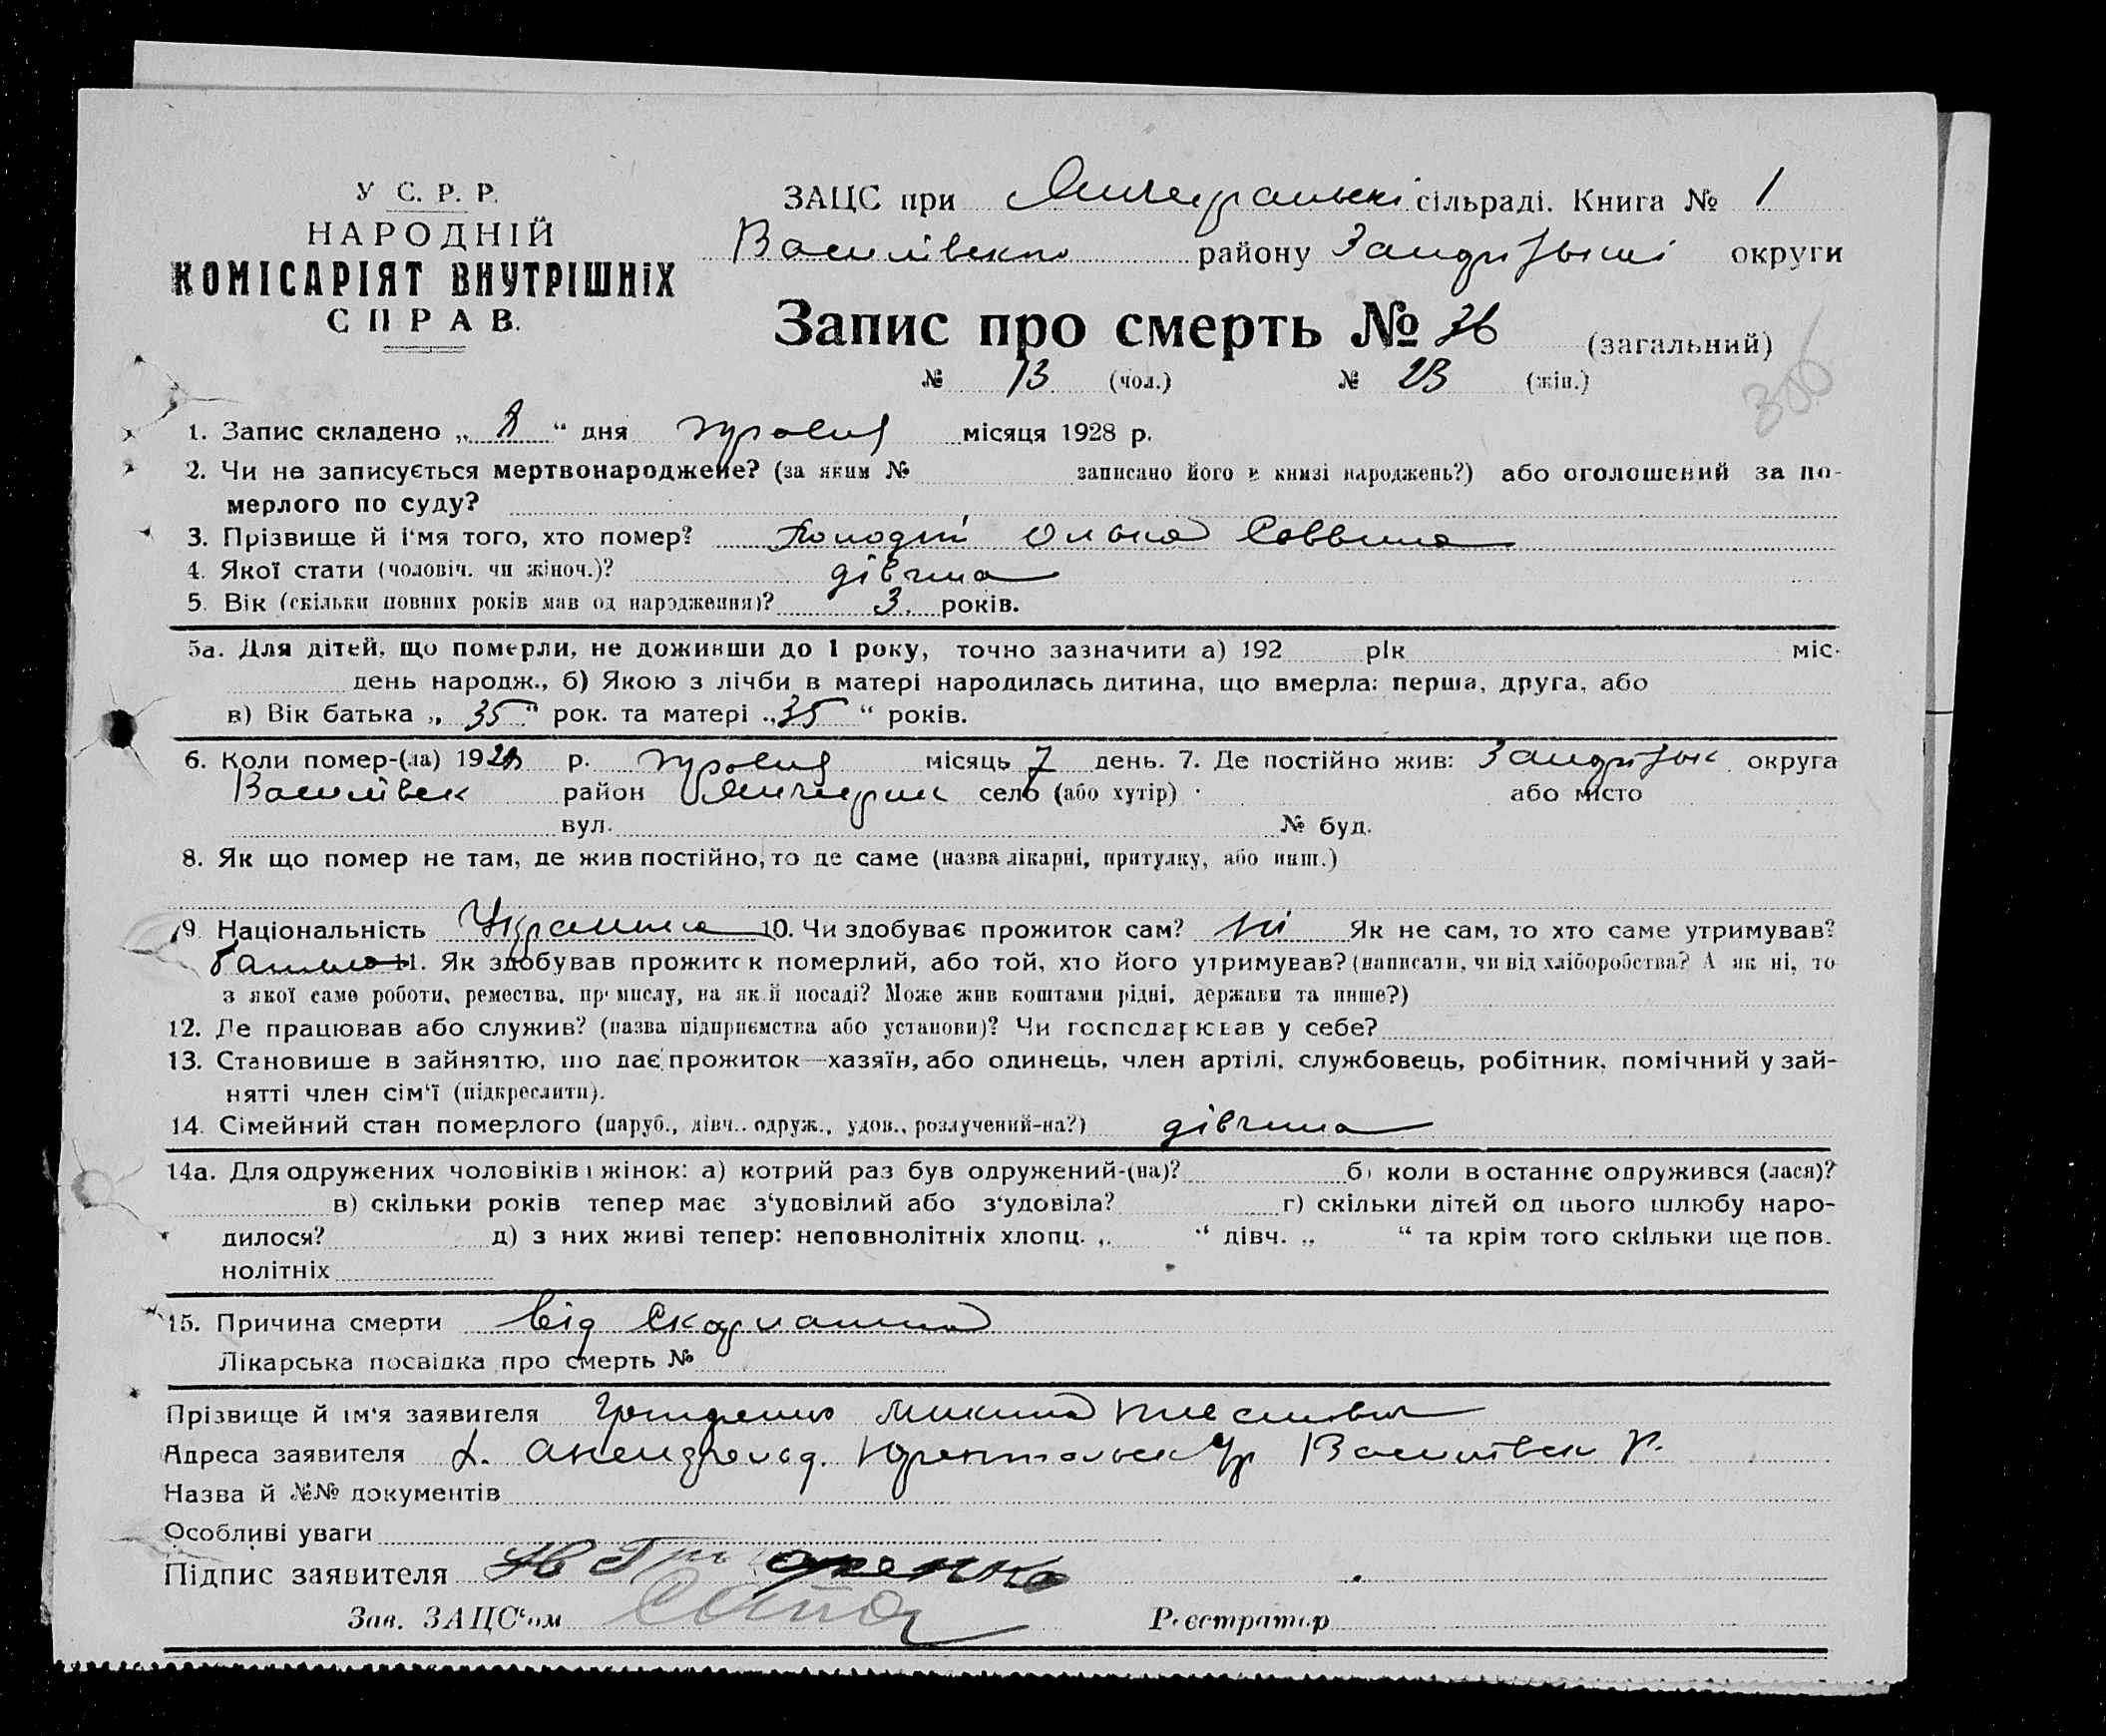 У С. Р. Р.
НАРОДНІЙ
КОМІСАРІЯТ ВНУТРІШНІХ
СПРАВ.
ЗАЦС при сільраді. Книга № 1
Василівского району округи
Запис про смерть № 36 (загальний)
№ 13 (чол.) № 23 (жін.)
306
1. Запис складено „ 8 “ дня місяця 1928 р.
2. Чи не записується мертвонароджене? (за яким № записано його в книзі народжень?) або оголошений за по-
мерлого по суду?
3. Прізвище й і'мя того, хто помер? Ольга Саввина
4. Якої стати (чоловіч. чи жіноч.)? дівчина
5. Вік (скільки повних років мав од народження)? 3. років.
5а. Для дітей, що померли, не доживши до 1 року, точно зазначити а) 192 рік міс.
день народж., б) Якою з лічби в матері народилась дитина, що вмерла: перша, друга, або
в) Вік батька „ 35 “ рок. та матері „ 35 “ років.
6. Коли помер-(ла) 1928 р. місяць 7 день. 7. Де постійно жив: округа
Василівськ район село (або хутір) або місто
вул. № буд.
8. Як що помер не там, де жив постійно, то де саме (назва лікарні, притулку, або инш.)
9. Національність Українка 10. Чи здобуває прожиток сам? ні Як не сам, то хто саме утримував?
батько 11. Як здобував прожиток померлий, або той, хто його утримував? (написати, чи від хліборобства? А як ні, то
з якої саме роботи, ремества, промислу, на якій посаді? Може жив коштами рідні, держави та инше?)
12. Де працював або служив? (назва підприємства або установи)? Чи господарював у себе?
13. Становище в зайняттю, що дає прожиток—хазяїн, або одинець, член артілі, службовець, робітник, помічний у зай-
нятті член сім‘ї (підкреслити).
14. Сімейний стан померлого (паруб., дівч., одруж., удов., розлучений-на?) дівчина
14а. Для одружених чоловіків і жінок: а) котрий раз був одружений-(на)? б) коли в останнє одружився (лася)?
в) скільки років тепер має з‘удовілий або з‘удовіла? г) скільки дітей од цього шлюбу наро-
дилося? д) з них живі тепер: неповнолітніх хлопц. „ “ дівч. „ “ та крім того скільки ще пов.
нолітніх
15. Причина смерти від скарлатина
Лікарська посвідка про смерть №
Прізвище й ім‘я заявителя Микита
Адреса заявителя Василівськ р.
Назва й №№ документів
Особливі уваги
Підпис заявителя Григоренко
Зав. ЗАЦС‘ом Реєстратор